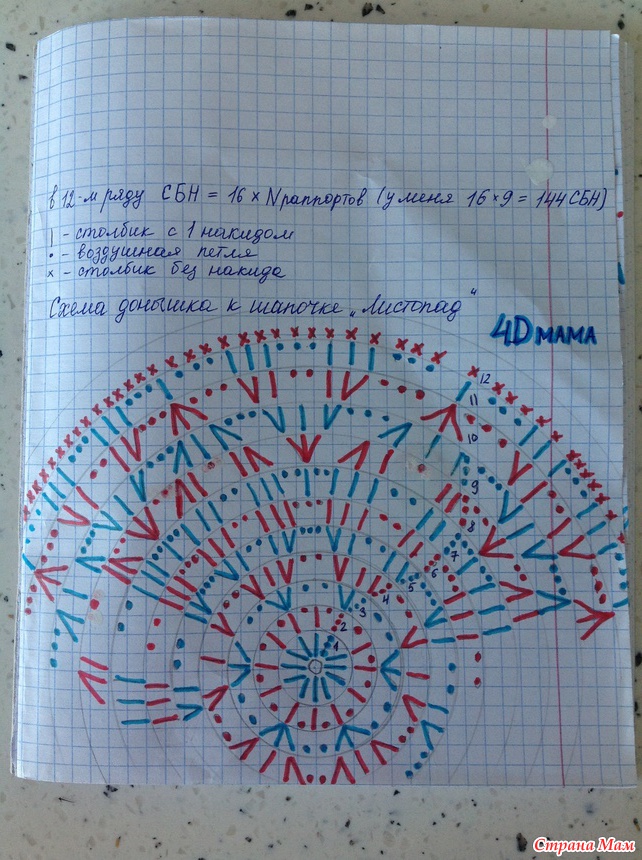 в 12-м ряду СБН = 16 x N раппортов (у меня 16 x 9 = 144 СБН)
| - столбик с 1 накидом
• - воздушная петля
x - столбик без накида
Схема донышка к шапочке „Листопад“
4D мама
12
11
10
9
8
7
6
5
4
3
2
1
Страна Мам